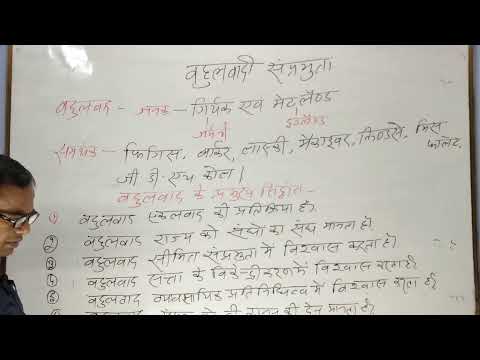 बहुलवादी संप्रभुता
बहुलवाद - जनक - गियर्क एवं मेटलैण्ड
जर्मनी इंग्लैण्ड
समर्थक - फिगिस, बार्कर, लास्की, मैकाइवर, लिण्डसे, मिस फालेट,
जी डी एच कोल।
बहुलवाद के प्रमुख सिद्धांत -
① बहुलवाद एकलवाद की प्रतिक्रिया है।
② बहुलवाद राज्य को संघो का संघ मानता है।
③ बहुलवाद सीमित संप्रभुता में विश्वास करता है।
④ बहुलवाद सत्ता के विकेन्द्रीकरण में विश्वास रखता है।
⑤ बहुलवाद व्यवसायिक प्रतिनिधित्व में विश्वास करता है।